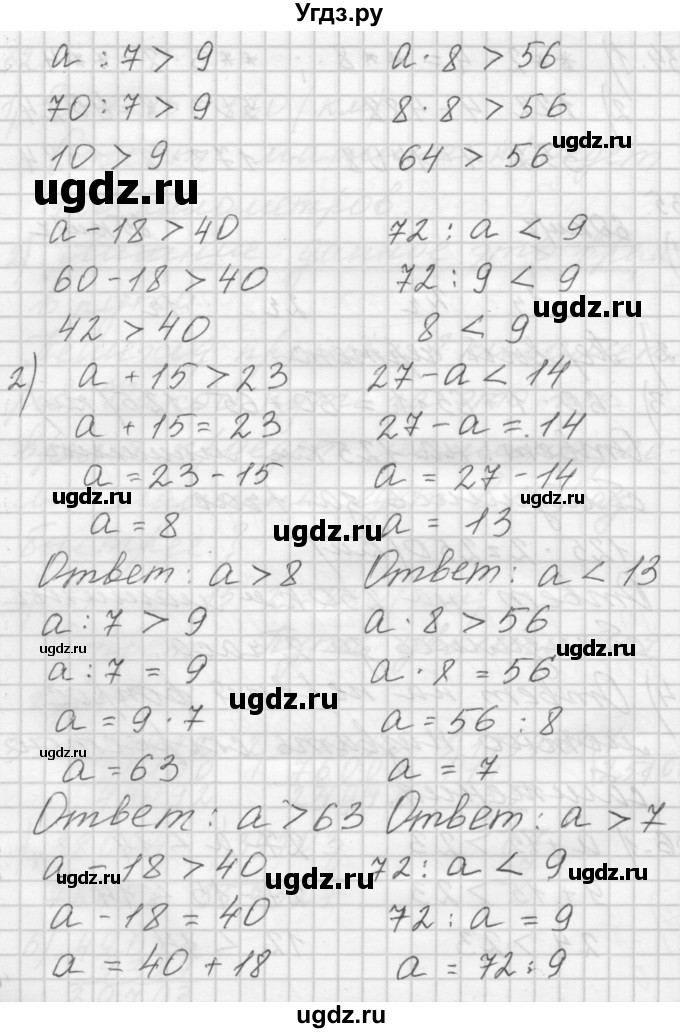 Угдз.ру
a : 7 > 9 a · 8 > 56
70 : 7 > 9 8 · 8 > 56
ugdz.ru
10 > 9 64 > 56
ugdz.ru
a - 18 > 40 72 : a < 9
60 - 18 > 40 72 : 9 < 9
ugdz.ru
42 > 40 8 < 9
2) a + 15 > 23 27 - a < 14
a + 15 = 23 27 - a = 14
a = 23 - 15 a = 27 - 14
ugdz.ru ugdz.ru
a = 8 a = 13
ugdz.ru
Ответ: a > 8 Ответ: a < 13
a : 7 > 9 a · 8 > 56
ugdz.ru ugdz.ru
a : 7 = 9 a · 8 = 56
ugdz.ru
a = 9 · 7 a = 56 : 8
ugdz.ru
a = 63 a = 7
Ответ: a > 63 Ответ: a > 7
a - 18 > 40 72 : a < 9
ugdz.ru ugdz.ru ugdz.ru
a - 18 = 40 72 : a = 9
a = 40 + 18 a = 72 : 9
ugdz.ru